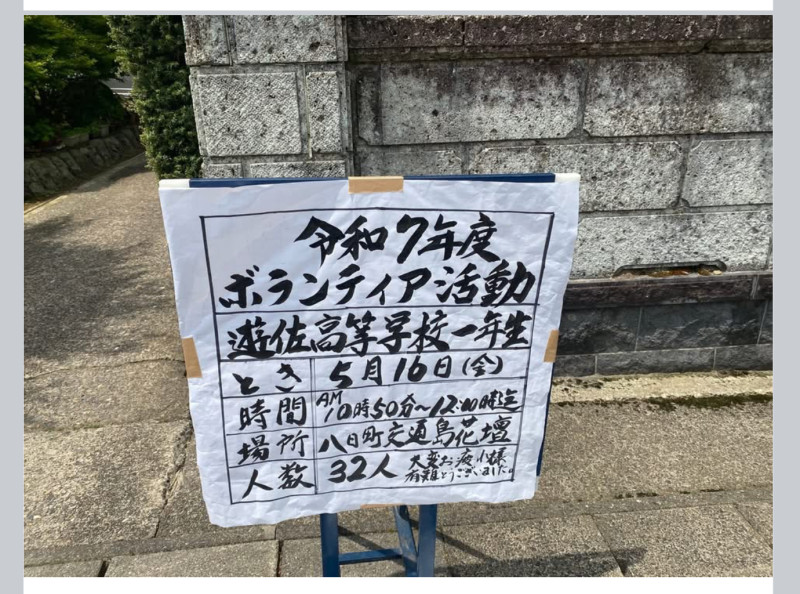 令和7年度
ボランティア活動
遊佐高等学校一年生
とき 5月16日(金)
時間 AM 10時50分~12:00時迄
場所 八日町交通島花壇
人数 32人 大変お疲れ様
有難とうございました。